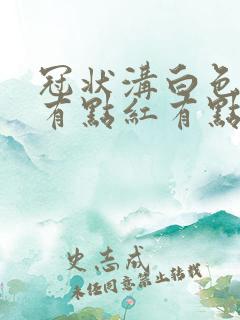 冠狀溝白色
有點紅有點
史志成
未经同意禁止转载